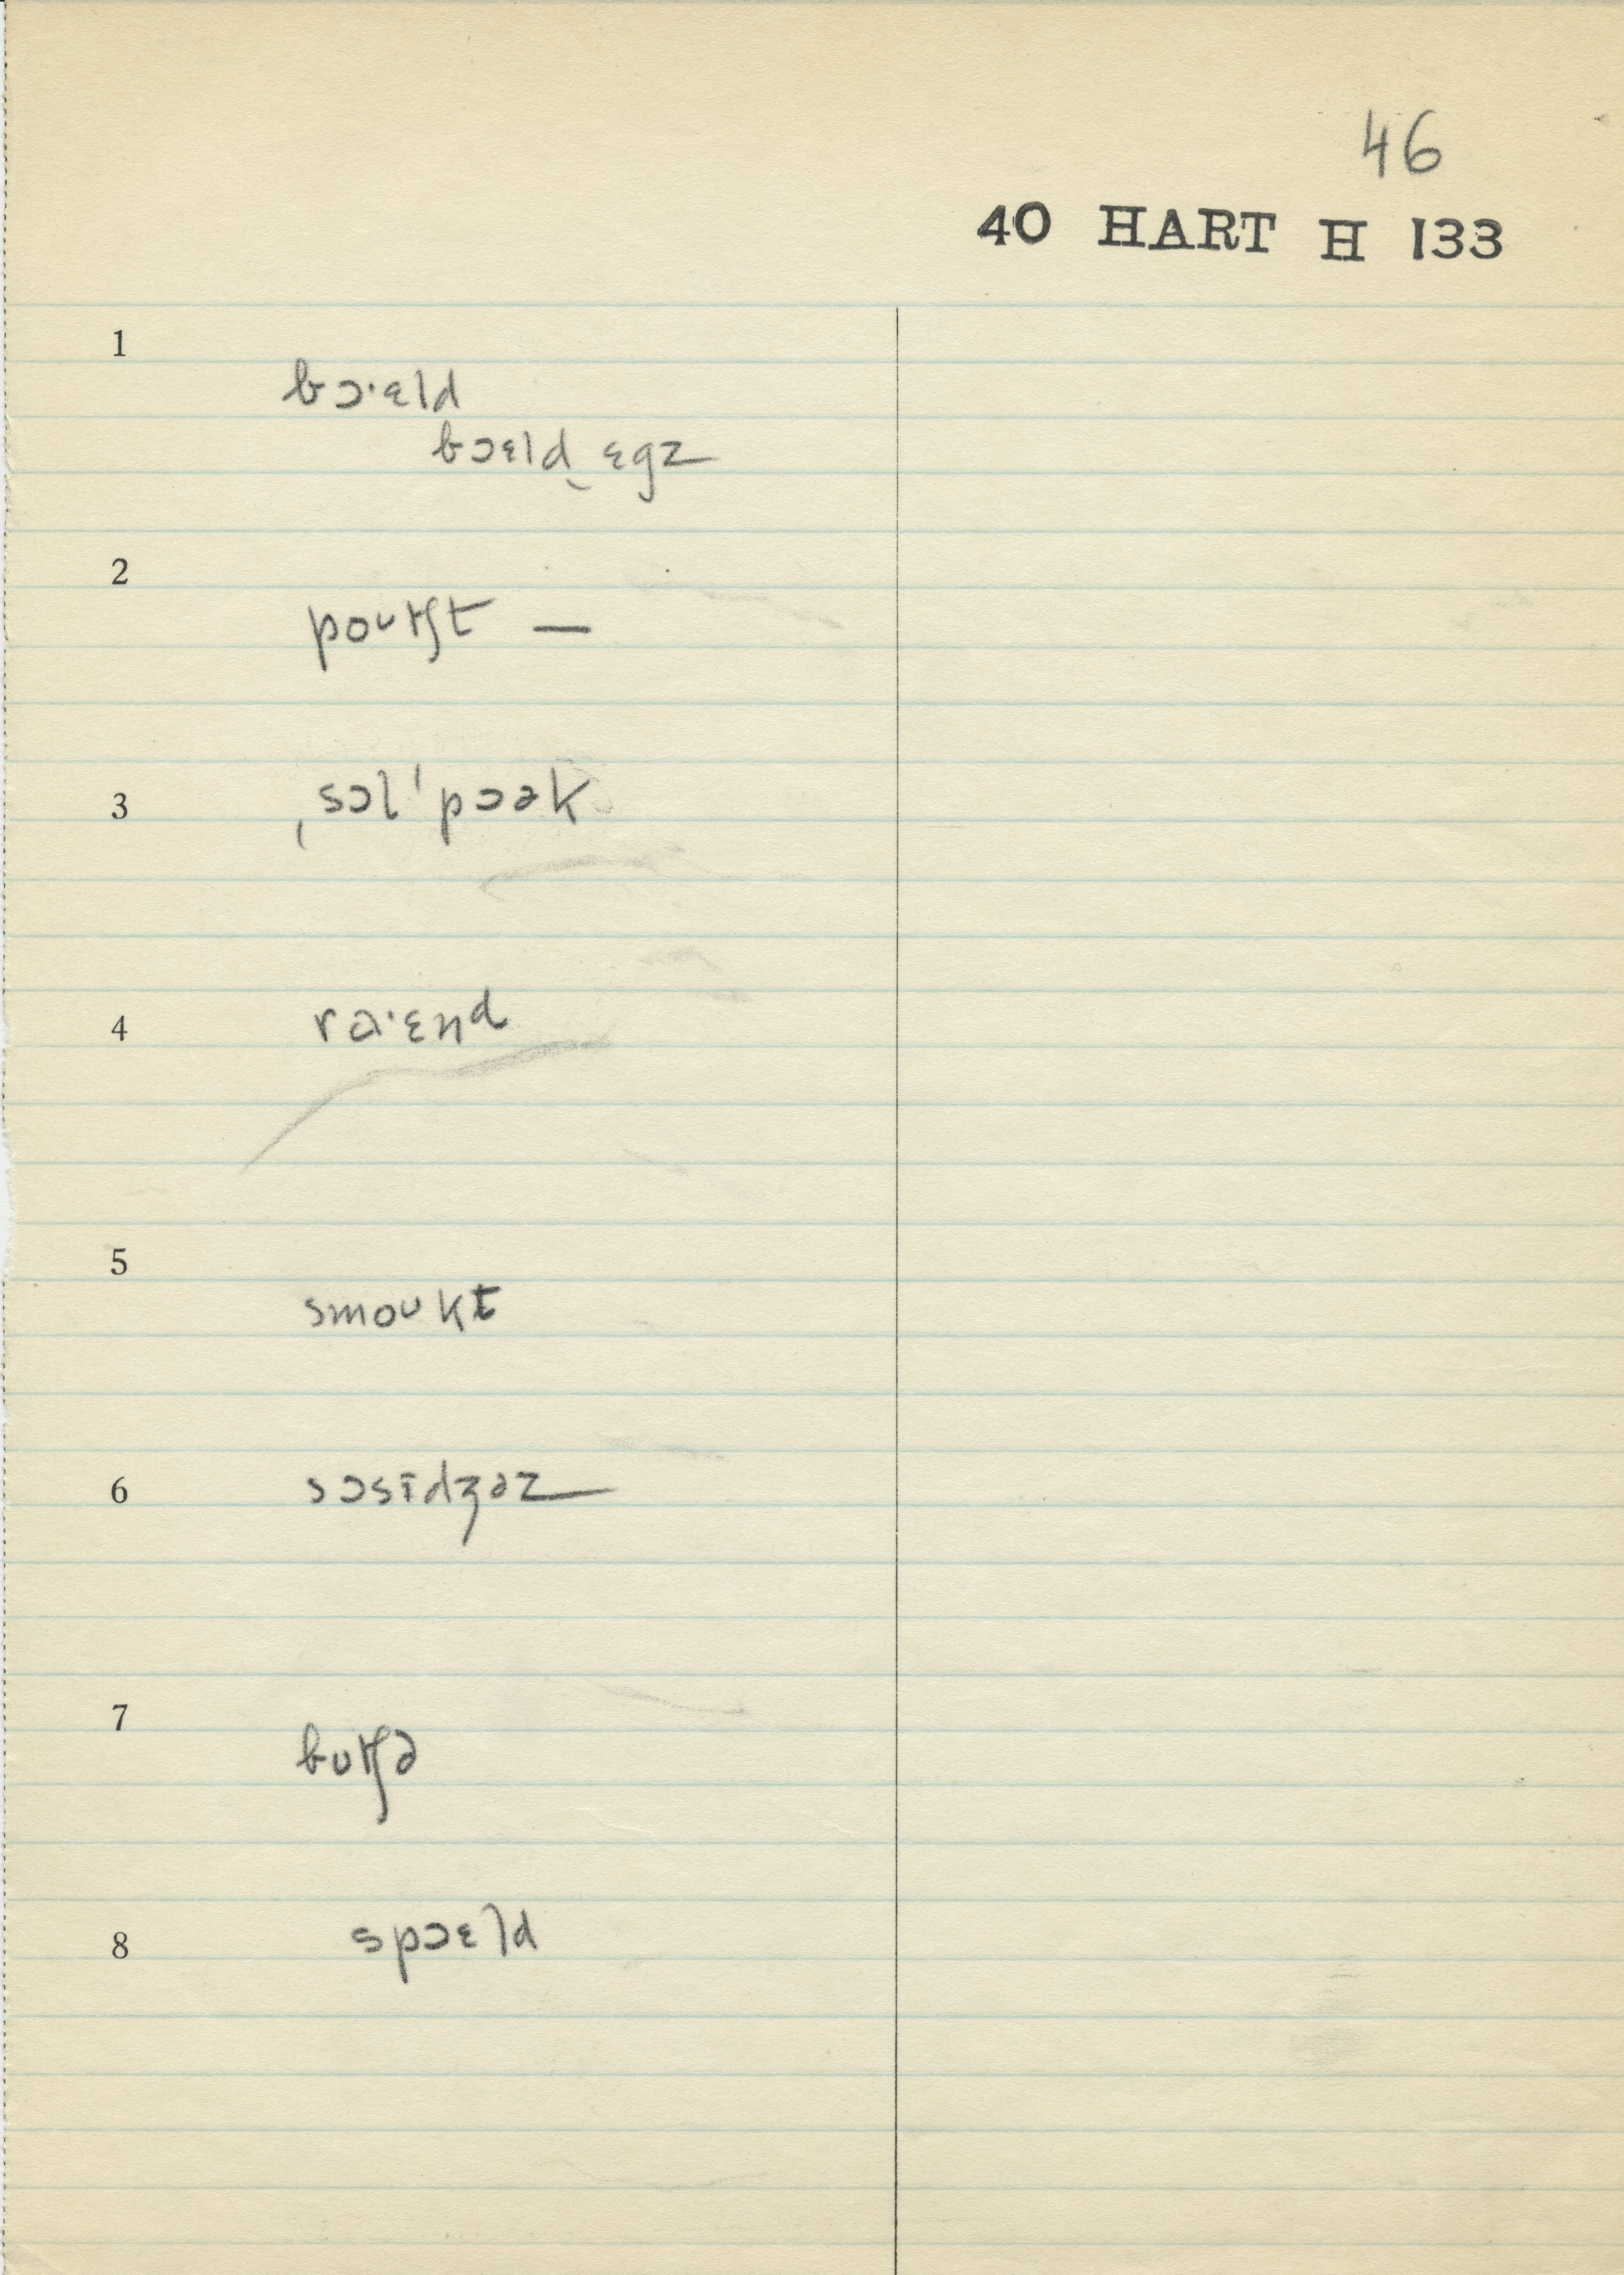 46
40 HART H 133
1
bɔ·ɛld
bɔɛld‿ɛgz
2
poʊtʃt —
3
ˌsɔlˈpɔək
4
rɑ·ɛnd
5
smoʊkt
6
sɔsɪdʒəz
7
bʊtʃə
8
spɔɛld